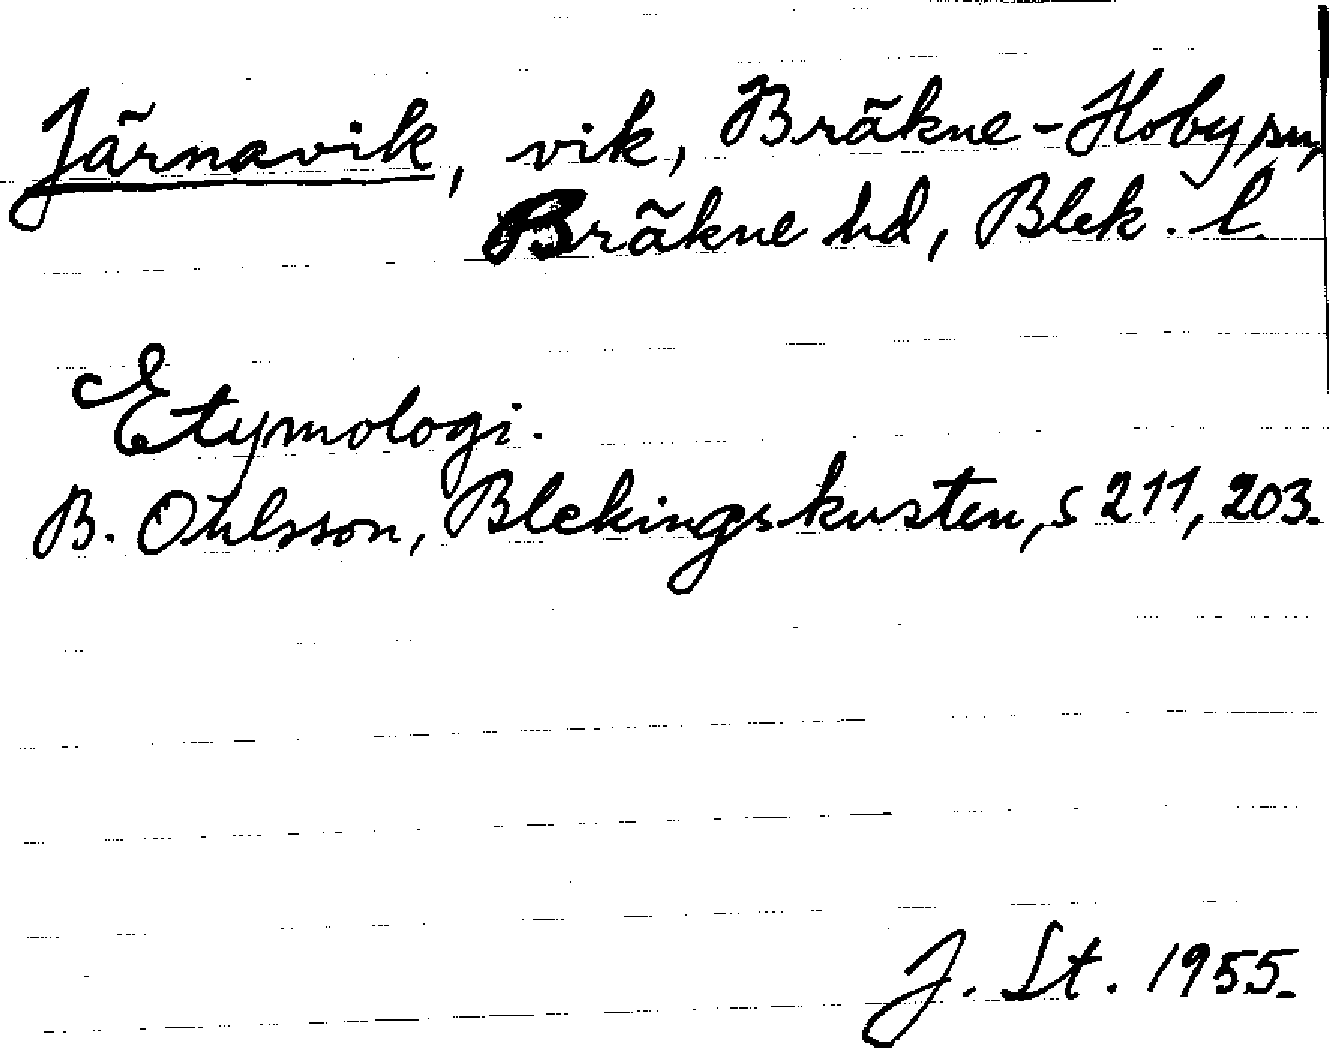 Järnavik, vik, Bräkne-Hoby sn,
Bräkne hd, Blek. l.
Etymologi.
B. Ohlsson, Blekingskusten, s 211, 203.
J. St. 1955.